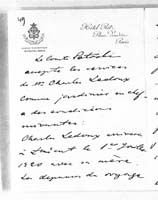 49
Hôtel Ritz
Place Vendôme
Paris
Le Comte Potocki
accepte les services
de Mr Charles Ledoux
comme jardinier en chef
à des conditions
suivantes:
Charles Ledoux arrivera
à 1er
1920 avec sa mère.
Les dépenses du voyage